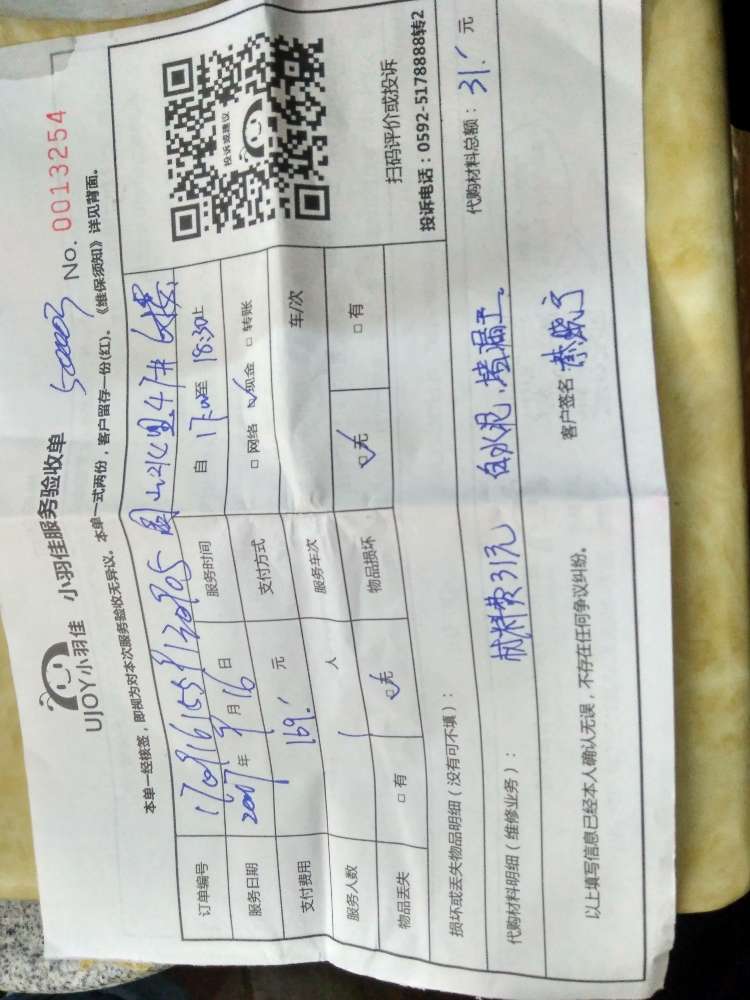 UJOY小羽佳 小羽佳服务验收单 No. 0013254
本单一经核签，即视为对本次服务验收无异议。本单一式两份，客户留存一份(红)。《维保须知》详见背面。
订单编号
服务日期 2017 年 9 月 16 日 服务时间 自 17:00 至 18:30 止
支付费用 169. 元 支付方式 □ 网络 ☑ 现金 □ 转账
服务人数 1 人 服务车次 车/次
物品丢失 □ 有 ☑ 无 物品损坏 ☑ 无 □ 有
投诉或建议
扫码评价或投诉
投诉电话：0592-5178888转2
损坏或丢失物品明细（没有可不填）：
代购材料明细（维修业务）： 材料费31元 白水泥，堵漏王。 代购材料总额：31. 元
以上填写信息已经本人确认无误，不存在任何争议纠纷。 客户签名